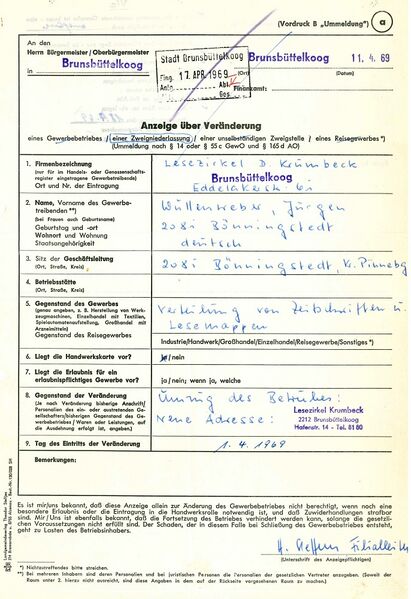 (Vordruck B „Ummeldung")
a
An den
Herrn Bürgermeister / Oberbürgermeister
in Brunsbüttelkoog
Stadt Brunsbüttelkoog
Eing. 17. APR. 1969
Brunsbüttelkoog 11. 4. 69
(Ort) (Datum)
Finanzamt:
Anzeige über Veränderung
eines Gewerbebetriebes / einer Zweigniederlassung / einer unselbständigen Zweigstelle / eines Reisegewerbes *)
(Ummeldung nach § 14 oder § 55 c GewO und § 165 d AO)
1. Firmenbezeichnung
(nur für im Handels- oder Genossenschafts-
register eingetragene Gewerbetreibende)
Ort und Nr. der Eintragung
Lesezirkel D. Krumbeck
Brunsbüttelkoog
Eddelakerstr.
2. Name, Vorname des Gewerbe-
treibenden **)
(bei Frauen auch Geburtsname)
Geburtstag und -ort
Wohnort und Wohnung
Staatsangehörigkeit
Jürgen
2081 Bönningstedt
deutsch
3. Sitz der Geschäftsleitung
(Ort, Straße, Kreis)
2081 Bönningstedt, Kr. Pinnebg
4. Betriebstätte
(Ort, Straße, Kreis)
5. Gegenstand des Gewerbes
(genau angeben, z. B. Herstellung von Werk-
zeugmaschinen, Einzelhandel mit Textilien,
Spielautomatenaufstellung, Großhandel mit
Arzneimitteln)
Gegenstand des Reisegewerbes
Verteilung von Zeitschriften u.
Lesemappen
Industrie/Handwerk/Großhandel/Einzelhandel/Reisegewerbe/Sonstiges *)
6. Liegt die Handwerkskarte vor?
ja/nein
7. Liegt die Erlaubnis für ein
erlaubnispflichtiges Gewerbe vor?
ja/nein; wenn ja, welche
8. Gegenstand der Veränderung
(je nach Veränderung bisherige Anschrift/
Personalien des ein- oder austretenden Ge-
sellschafters/bisherigen Gegenstand des Ge-
werbes/Waren oder Leistungen, auf die
Ausdehnung erfolgt ist, angeben.)
Umzug des Betriebes:
Neue Adresse:
Lesezirkel Krumbeck
2212 Brunsbüttelkoog
Hafenstr. 14 - Tel. 8180
9. Tag des Eintritts der Veränderung
1. 4. 1969
Bemerkungen:
Es ist mir/uns bekannt, daß diese Anzeige allein zur Änderung des Gewerbebetriebes nicht berechtigt, wenn noch eine
besondere Erlaubnis oder die Eintragung in die Handwerksrolle notwendig ist, und daß Zuwiderhandlungen strafbar
sind. Mir/Uns ist ebenfalls bekannt, daß die Fortsetzung des Betriebes verhindert werden kann, solange die gesetzli-
chen Voraussetzungen nicht erfüllt sind. Der Schaden, der in diesem Falle bei Schließung des Gewerbebetriebes entsteht,
geht zu Lasten des Betriebsinhabers.
(Unterschrift des Anzeigepflichtigen)
*) Nichtzutreffendes bitte streichen.
**) Bei mehreren Inhabern sind deren Personalien und bei juristischen Personen die Personalien der gesetzlichen Vertreter anzugeben. (Soweit der
Raum unter 2. hierzu nicht ausreicht, sind diese Angaben in dem auf der Rückseite vorgesehenen Raum zu machen.)